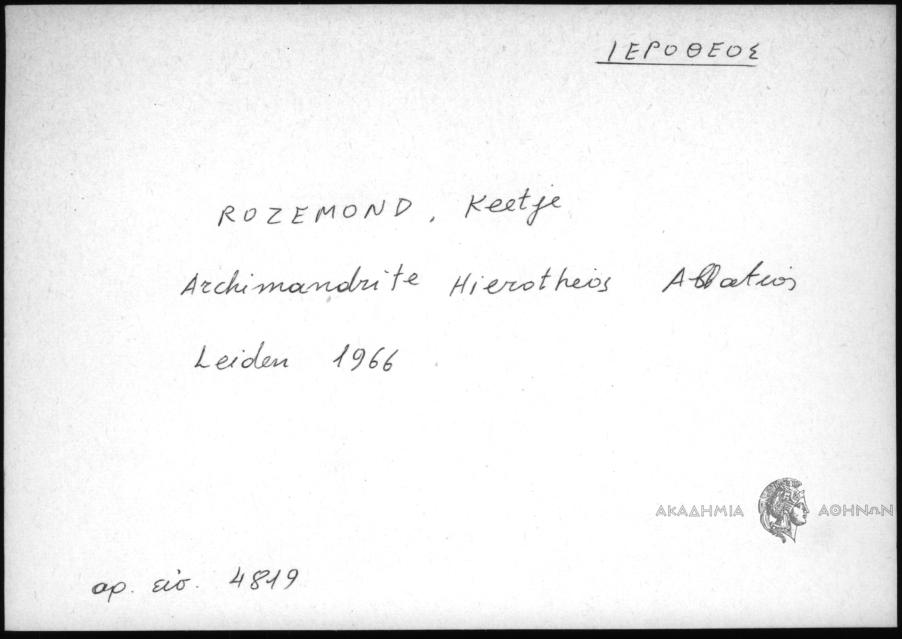 ΙΕΡΟΘΕΟΣ
ROZEMOND, Keetje
Archimandrite Hierotheos Abbatios
Leiden 1966
ΑΚΑΔΗΜΙΑ ΑΘΗΝΩΝ
αρ. εισ. 4819